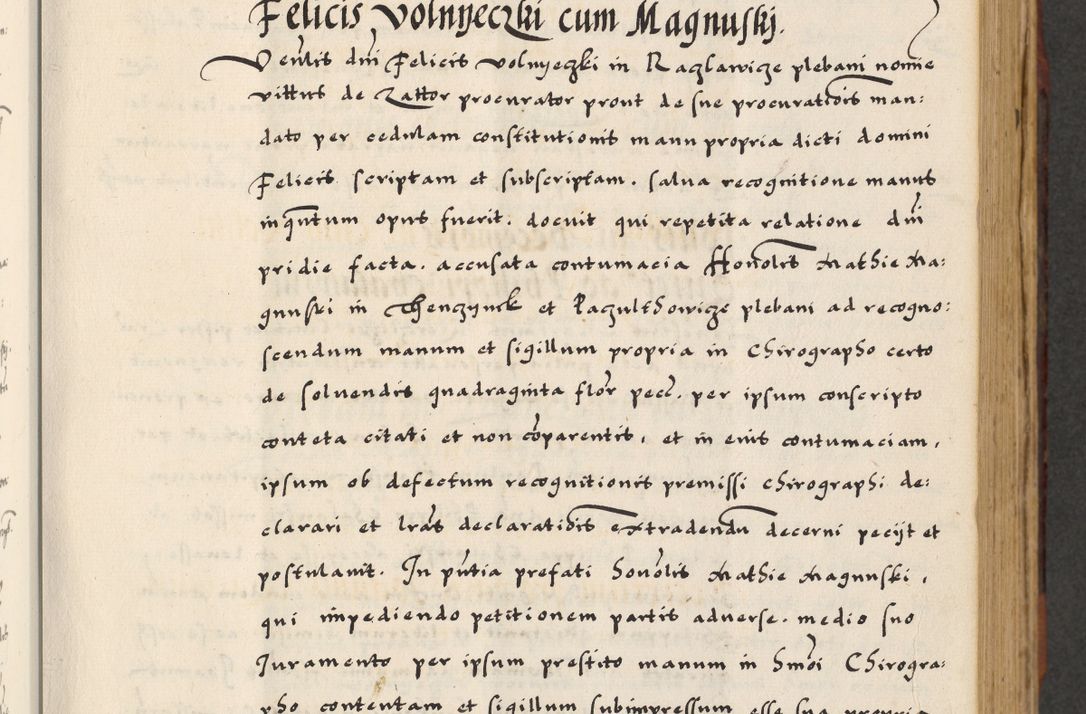 Felicis Volnyeczki cum Magnuskj.
Venlis dni Felicis volnyeczki in Raczlawicze plebani nomie
vittus de Zattor procurator prout de sue procurationis man:
dato per cedulam constitutionis manu propria dicti domini
Felicis scriptam et subscriptam. salua recognitione manus
inqntum opus fuerit. docuit qui repetita relatione dni
pridie facta. accusata contumacia Honolis Mathie Ma:
gnuski in Thenczynek et Paczulthowicze plebani ad recogno:
scendum manum et sigillum propria in Chirographo certo
de soluendis quadraginta flor pecc. per ipsum conscripto
conteta citati et non coparentis, et in eius contumaciam,
ipsum ob defectum recognitionis premissi chirographi de:
clarari et lras declaratiois extradendu decerni pecijt et
postulauit. In pntia prefati honolis Mathie Magnuski,
qui impediendo petitionem partis aduerse. medio suo
Iuramento per ipsum prestito manum in hmoi Chirogra:
pho contentam et sigillum subimpressum esse sua propria